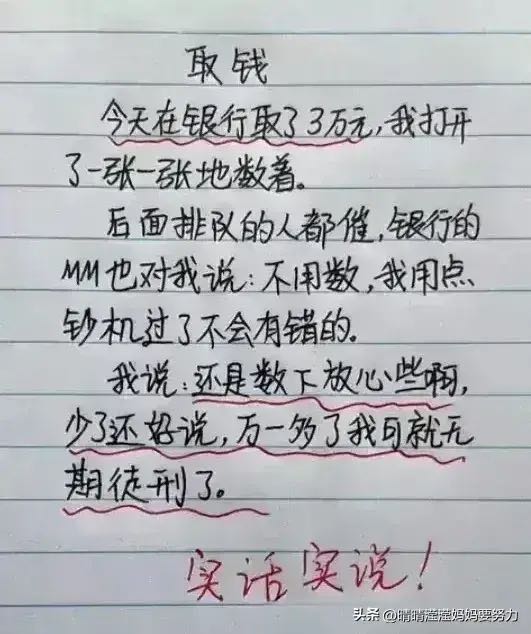 取钱
今天在银行取了3万元,我打开
了一张一张地数着。
后面排队的人都催,银行的
MM也对我说:不用数,我用点
钞机过了不会有错的。
我说:还是数下放心些啊,
少了还好说,万一多了我可就无
期徒刑了。
实话实说!
头条 @晴晴滢滢妈妈要努力